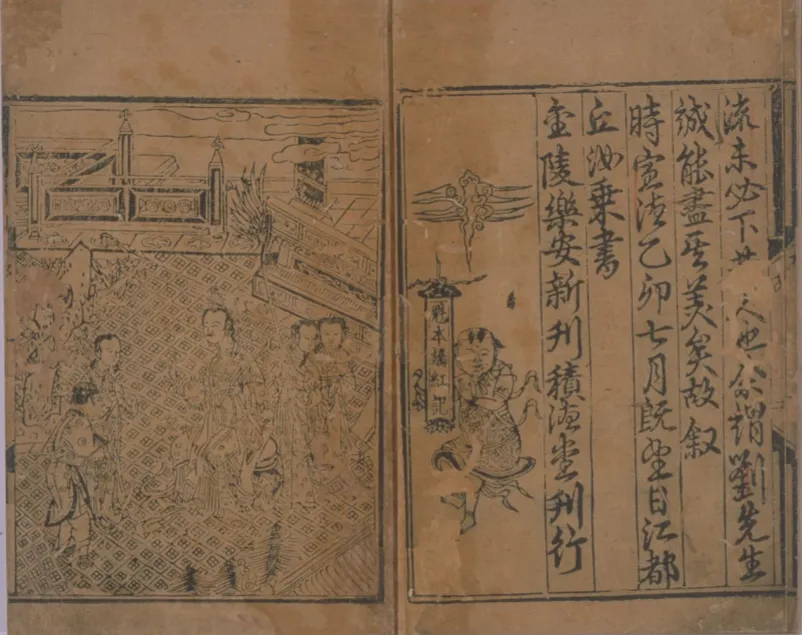 流未必下也余謂劉先生
誠能盡其美矣故叙
時宣德乙卯七月既望日江都
丘汝乘書
金陵樂安新刊積德堂刊行
魁本嬌紅記